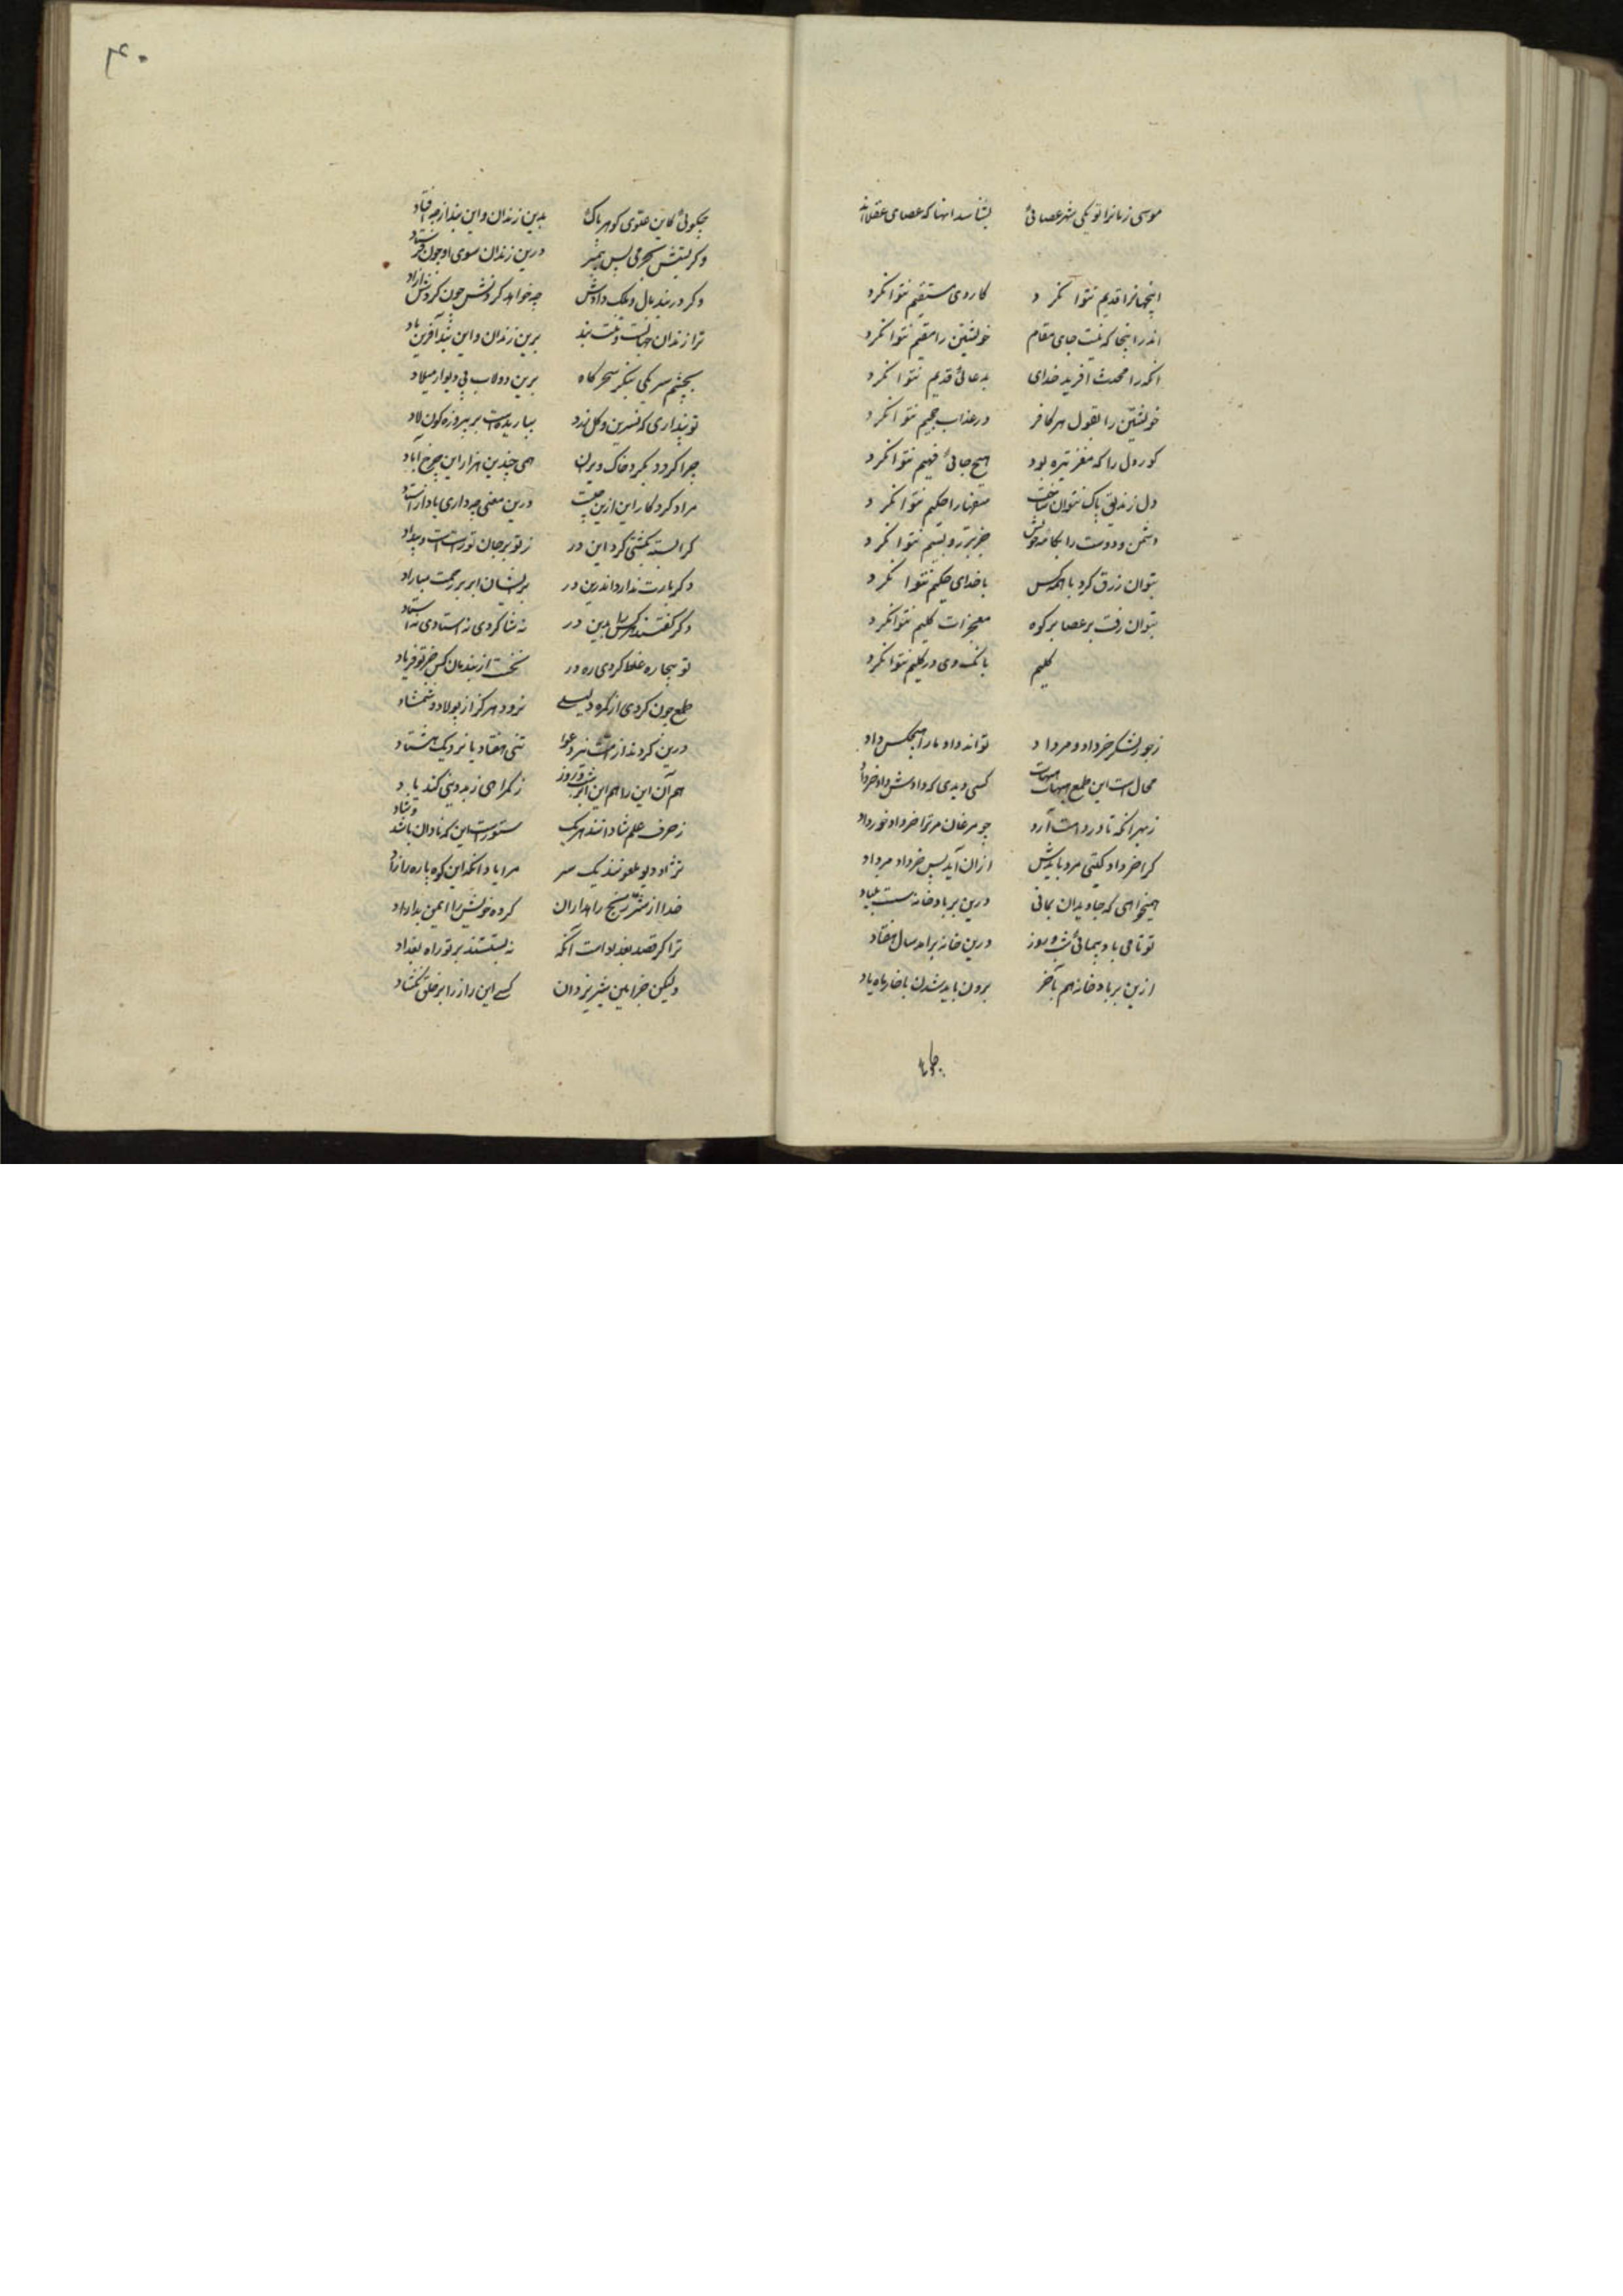 موسی زمانرا تو یکی شهر عصائی بشناسد انها که عصای عقلااند
اینجهانرا قدیم نتوانکرد کار وی مستقیم نتوانکرد
اندر اینجا که نیست جای مقام خویشتن را مقیم نتوانکرد
انکه را محدث افرید خدای بدعائی قدیم نتوانکرد
خویشتن را بقول هر کافر در عذاب جحیم نتوانکرد
کور دل را که مغز تیره بود هیچ جائی فهیم نتوانکرد
دل ز زندیق پاک نتوان ساخت را حکیم نتوانکرد
دشمن و دوست را بکامه خویش جز بتر و بیم نتوانکرد
بتوان زرق کرد با همه کس با خدای حکیم نتوانکرد
بتوان رفت بر عصا بر کوه معجزات کلیم نتوانکرد
کلیم بانک وی در کلیم نتوانکرد
ز جور لشکر خرداد و مرداد تواند داد ما را هیچکس داد
محال است این طمع هیهات هیهات کسی دیدی که دادش داد خرداد
ز بهر انکه تا در دامت آرد چو مرغان مر ترا خرداد خور داد
کرا خرداد کیتی مرد بایدش از ان آید پس خرداد مرداد
همیخواهی که جاویدان بمانی درین بر باد خانه سست بنیاد
تو تا می باد پیمائی شب و روز درین خانه برامد سال هفتاد
ازین بر باد خانه هم بآخر برون باید شدن ناچار با باد
۴۰
چکوئی کاین علوی کوهر پاک بدین زندان و این بند از چه افتاد
وکر بیش بجرمی پس پیمبر درین زندان سوی او چون فرستاد
وکر در بند مال و ملک دادش چه خواهد کردنش چون کردش ازاد
ترا زندان جهانست و تنت بند برین زندان و این بند آفرین باد
بچشم سر یکی بنکر سحرکاه برین دولاب بی دیوار میلاد
تو پنداری که نسرین و کل زرد بباریدست بر پیروزه کون لاد
چرا کردد بکرد خاک ویران همی چندین هزار این چرخ آباد
مراد کردکار این از ین چیست درین معنی چه داری یاد از استاد
کر البته نکشتی کرد این در ز تو بر جان تو رست است بیداد
وکر یارت ندارد اندرین در بریشان ابر برحمت مباراد
وکر کفتند هرکس بدین در نه شاکردی نه استادی نه استاد
تو بیچاره غلط کردی ره در نخست از بندمان کس جز تو فریاد
طمع چون کردی از کمره دلیلی نروید هرکز از پولاد شمشاد
درین کردند از امت نیز دعوا تنی هفتاد یا نزدیک هشتاد
هم آن این را هم این آنرا شب و روز ز کمراهی ز بیدینی کند یاد
ز حرف علم شادانند هریک ستورست این که نادان باشد و شاد
نژاد دیو ملعونند یک سر مرا یاد انکه این کوه پاره را زاد
خدا از شر و رنج راهداران کروه خویش را ایمن بداراد
ترا کر قصد بغدادست آنکه نه بستند بر تو راه بغداد
ولیکن جز امین شهر یزدان کسی این راز را بر خلق نکشاد